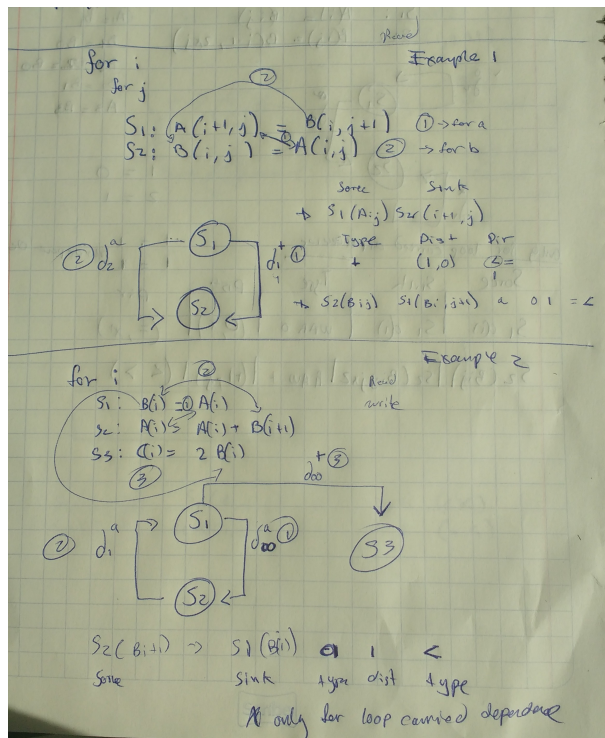 Read
Example 1
for i
for j
②
S1: A(i+1,j) = B(i,j+1) ① → for a
S2: B(i,j) = A(i,j) ② → for b
①
Sorce Sink
→ S1(Aij) S2(i+1,j)
Type Dist Dir
t (1,0) <=
S1
② d2^a d1^t ①
S2
→ S2(Bij) S1(Bi,j+1) a 0 1 = <
Example 2
for i ② Read
S1: B(i) = ① A(i) write
S2: A(i) = A(i) + B(i+1)
S3: C(i) = 2 B(i)
③
d∞^t ③
S1
② d1^a d∞^a ① S3
S2
S2(Bi+1) → S1(B(i)) a 1 <
Sorce Sink type dist type
only for loop carried dependence